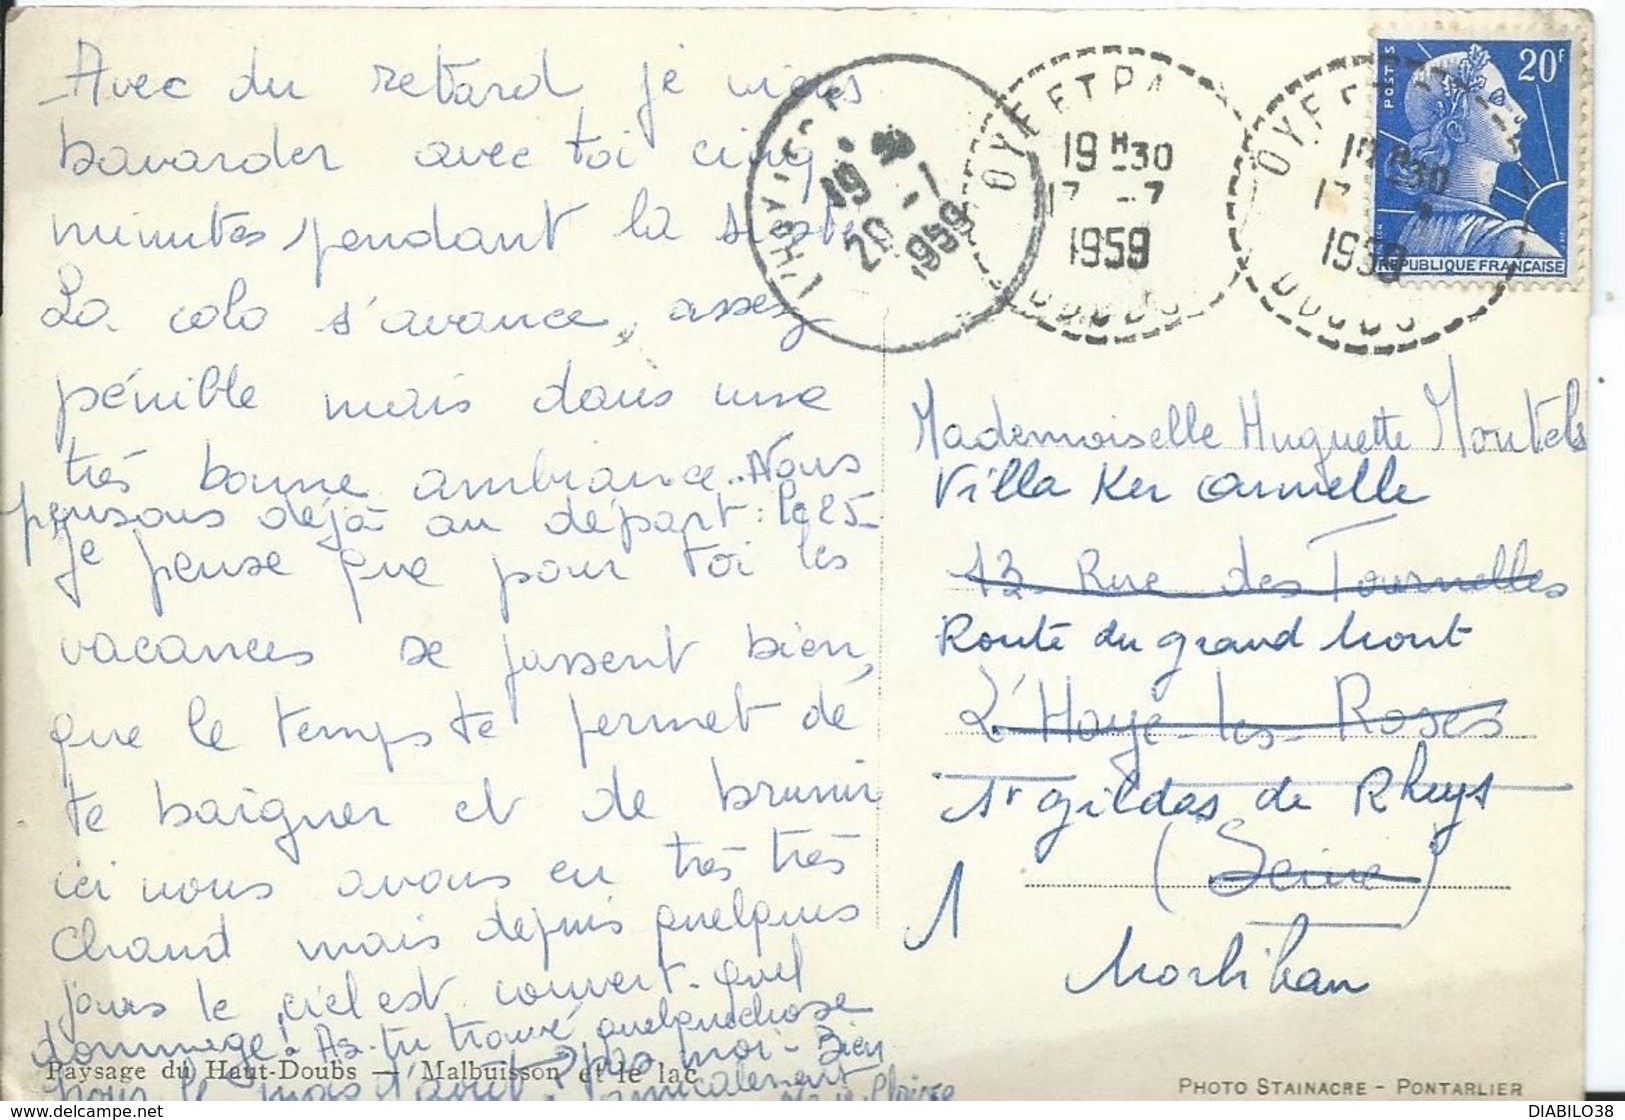 Avec du retard je viens
bavarder avec toi cinq
minutes pendant la sieste
La colo s'avance, assez
pénible mais dans une
très bonne ambiance.. Nous
pensons déjà au départ : le 25-
Je pense que pour toi les
vacances se passent bien,
que le temps te permet de
te baigner et de brunir
ici nous avons eu très très
chaud mais depuis quelques
jours le ciel est couvert. quel
dommage ! As-tu trouvé quelque chose
pour le mois d'août ? pas moi - Bien
amicalement
Paysage du Haut-Doubs — Malbuisson et le lac
OYE ET PA
19 H 30
17 -7
1959
DOUBS
OYE ET
19 H 30
17
1959
DOUBS
19 H
20 -7
1959
POSTES
20F
REPUBLIQUE FRANÇAISE
Mademoiselle Huguette Montels
Villa Ker Armelle
13 Rue des Tournelles
Route du grand Mont
L'Haye-les-Roses
St Gildas de Rhuys
(Seine)
1
Morbihan
PHOTO STAINACRE - PONTARLIER
DIABILO38